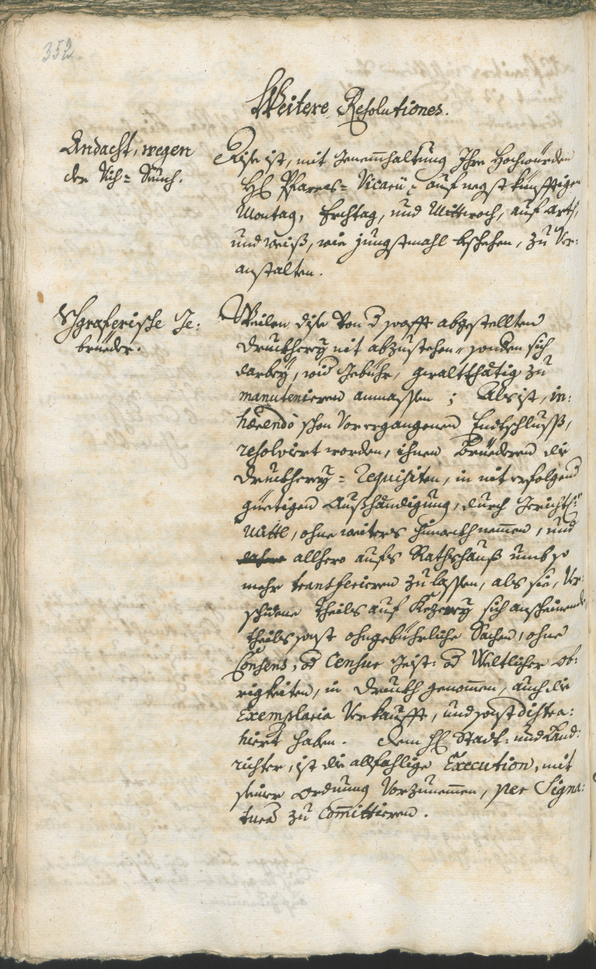 352.
Weitere Resolutiones.
Andacht, wegen
der Vich= Seuch.
Dise ist, mit genemhaltung Ihro Hochwürden
H: Pfarrs= Vicarii, auf negst künfftigen
Montag, Erchtag, und Mittwoch, auf arth,
und weiß, wie jüngstmahl beschehen, zu Ver=
anstalten.
Schgraferische Ge=
brüeder.
Weilen dise von d abgestellten
Druckherey nit abzustehen, sondern sich
darbey, wid Gebühr, gewaltthätig zu
manuteniren anmassen; Als ist, in=
haerendo schon Vorergangenen Endtschlusß,
resolviert worden, ihnen Brüederen die
Druckherey= Requisiten, in nit erfolgend
güetigen Außhändigung, durch Gerichts=
Mittl, ohne weiters hinweckhnemmen, und
allhero aufs Rathshauß umb so
mehr transferieren zu lassen, als sie, Ver=
schidene theils auf Kezerey sich anscheinende,
theils sonst ohngebührliche Sachen, ohne
Consens, od Censur Geist= od Weltlicher Ob=
rigkheiten, in Druckh genommen, auch die
Exemplaria Verkaufft, und sonst distra=
hiert haben. Dem H: Statt= und Land=
richter, ist die allfahlige Execution, mit
seiner ordnung Vorzunemmen, per Signa=
tura zu Committieren.